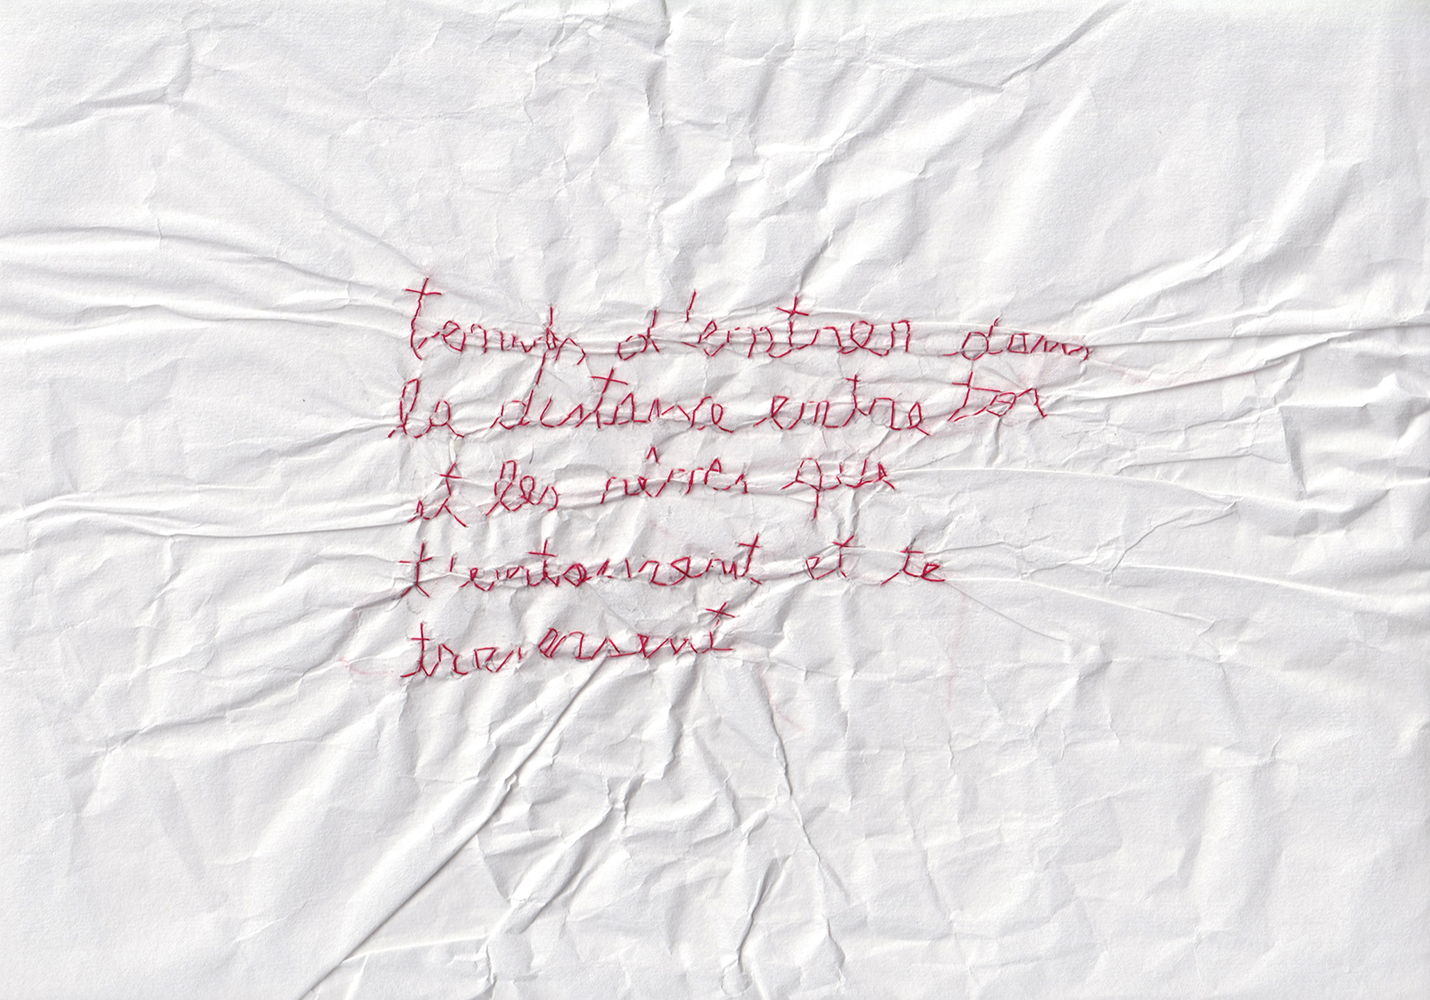 temps d'entrer dans
la distance entre toi
et les rêves que
t'entourent et te
traversent